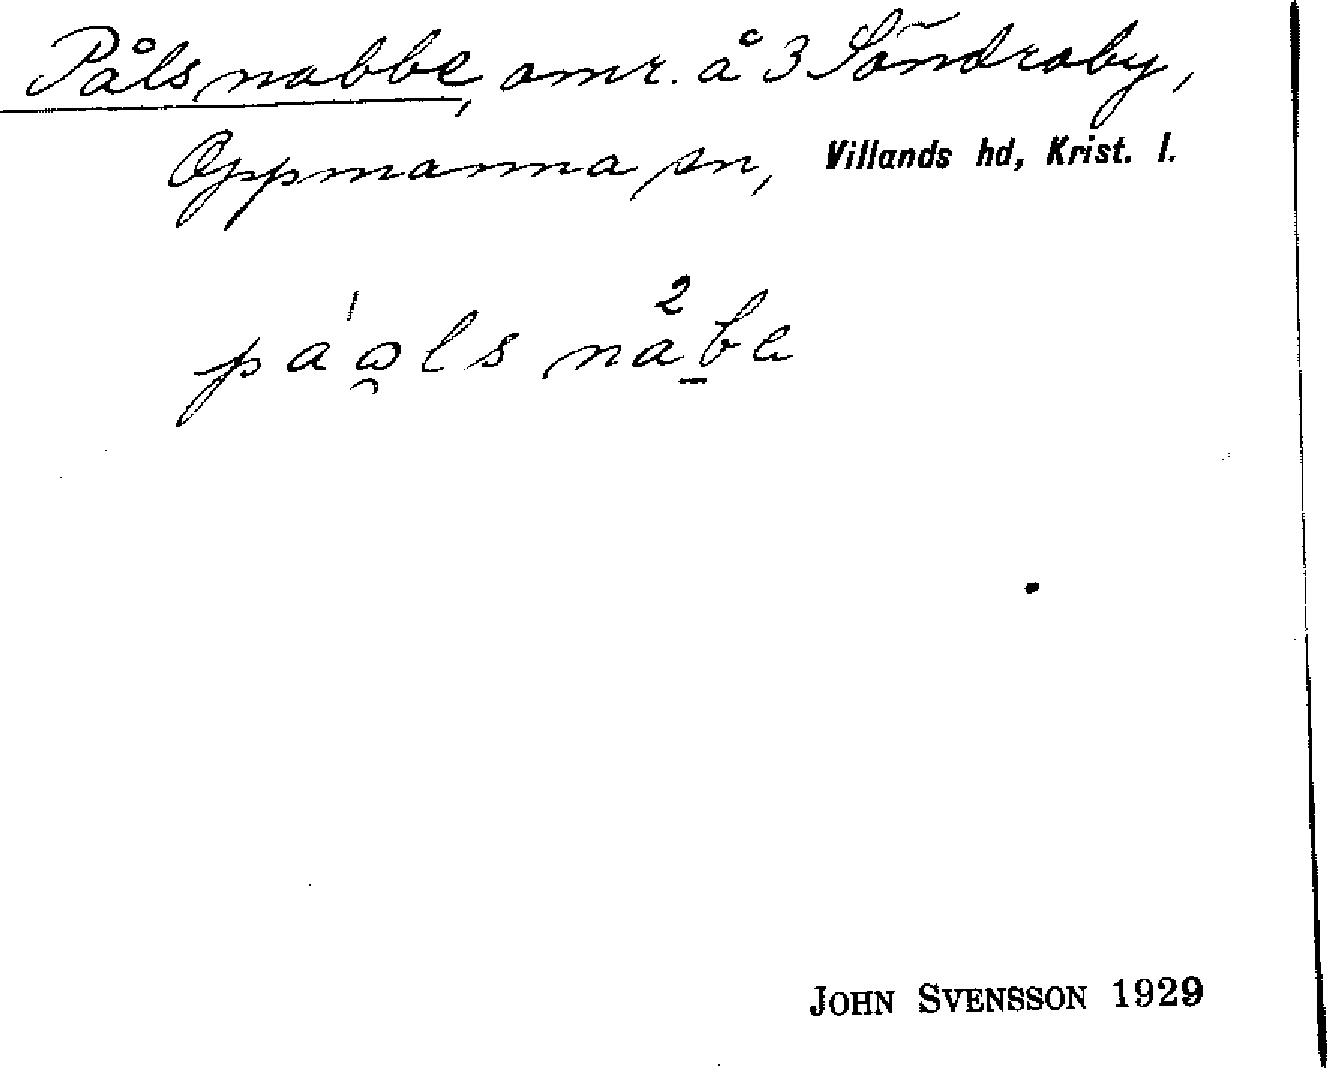 Påls nabbe, omr. å 3 Söndraby,
Oppmanna sn, Villands hd, Krist. l.
JOHN SVENSSON 1929